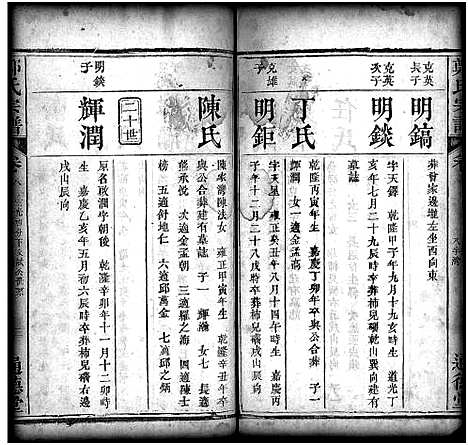 鄭氏宗譜
克英長子
明鎬
葬曾家邊壠左坐西向東
克英次子
明錟
字天鐸 乾隆甲子年九月十九亥時生 道光丁
亥年七月二十九辰時卒葬柿兒磺乾山巽向建有
墓誌
丁氏
乾隆丙寅年生 嘉慶丁卯年卒與公合葬 子一
輝潤 女一適金孟高
克雄子
明鉅
字天星 雍正 八月十四午時生 嘉慶丙
子年十二月二十八戌時卒葬柿兒
陳氏
陳家灣陳法女 雍正甲寅年生 乾隆辛丑年卒
與公合葬建有墓誌 子一 輝瀚 女七 長適
熊承悅 次適金聖朝 三適羅之海 四適陳士
榜 五適舒地仁 六適邱萬金 七適邱之炳
二十世
明錟子
輝潤
原名啟潤字朝後 乾隆辛卯年十一月十二卯時
生 嘉慶乙亥年五月初六辰時卒葬柿兒磺右邊
戌山辰向
通德堂